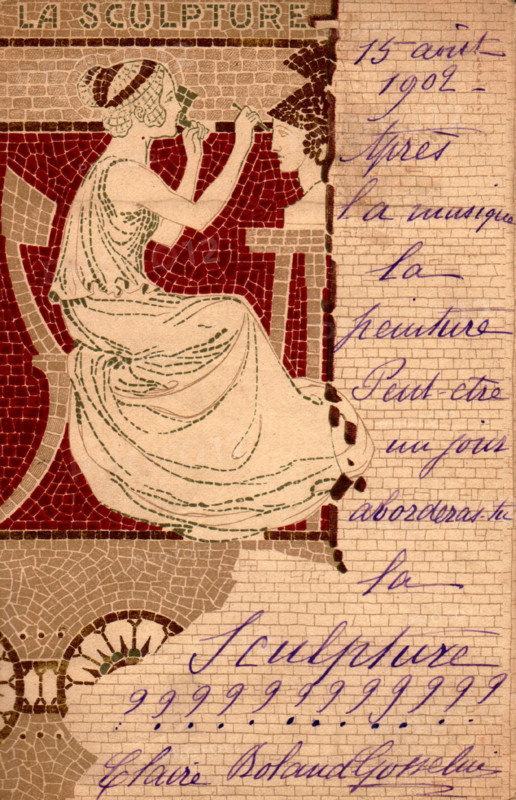 LA SCULPTURE
15 août
1902 -
Après
la musique
la
peinture
Peut-être
un jour
aborderas-tu
la
Sculpture
? ? ? ? ? ? ? ? ? ? ? ?
Claire Boland Gosselin